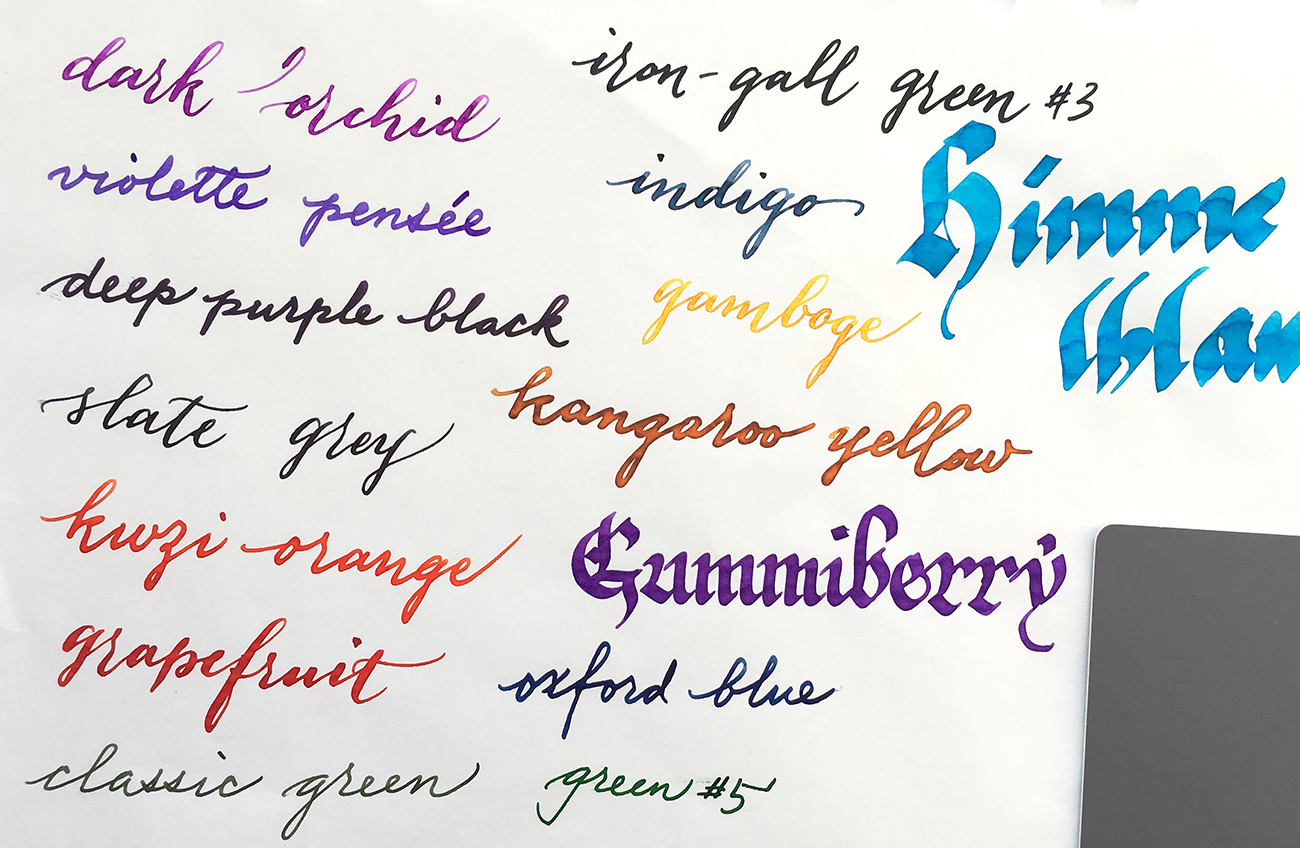 dark orchid
violette pensée
deep purple black
slate grey
kwzi orange
grapefruit
classic green
iron-gall green #3
indigo
gamboge
kangaroo yellow
Gummiberry
oxford blue
green #5
Himme
lblau